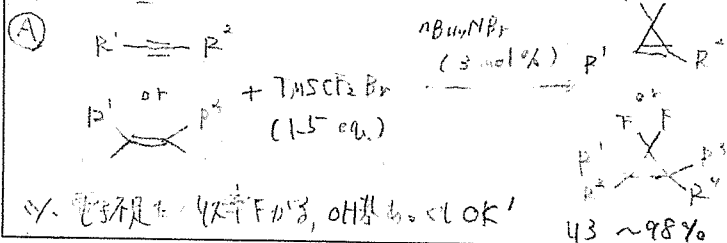 Ⓐ
R¹ ≡ R²
or
R¹ R³
+ TMSCF₂Br
(1.5 eq.)
nBu₄NBr
(3 mol%)
R¹ R²
or
F F
R¹ R³
R² R⁴
収率下がる, OH基あってもOK'
43 ~98%